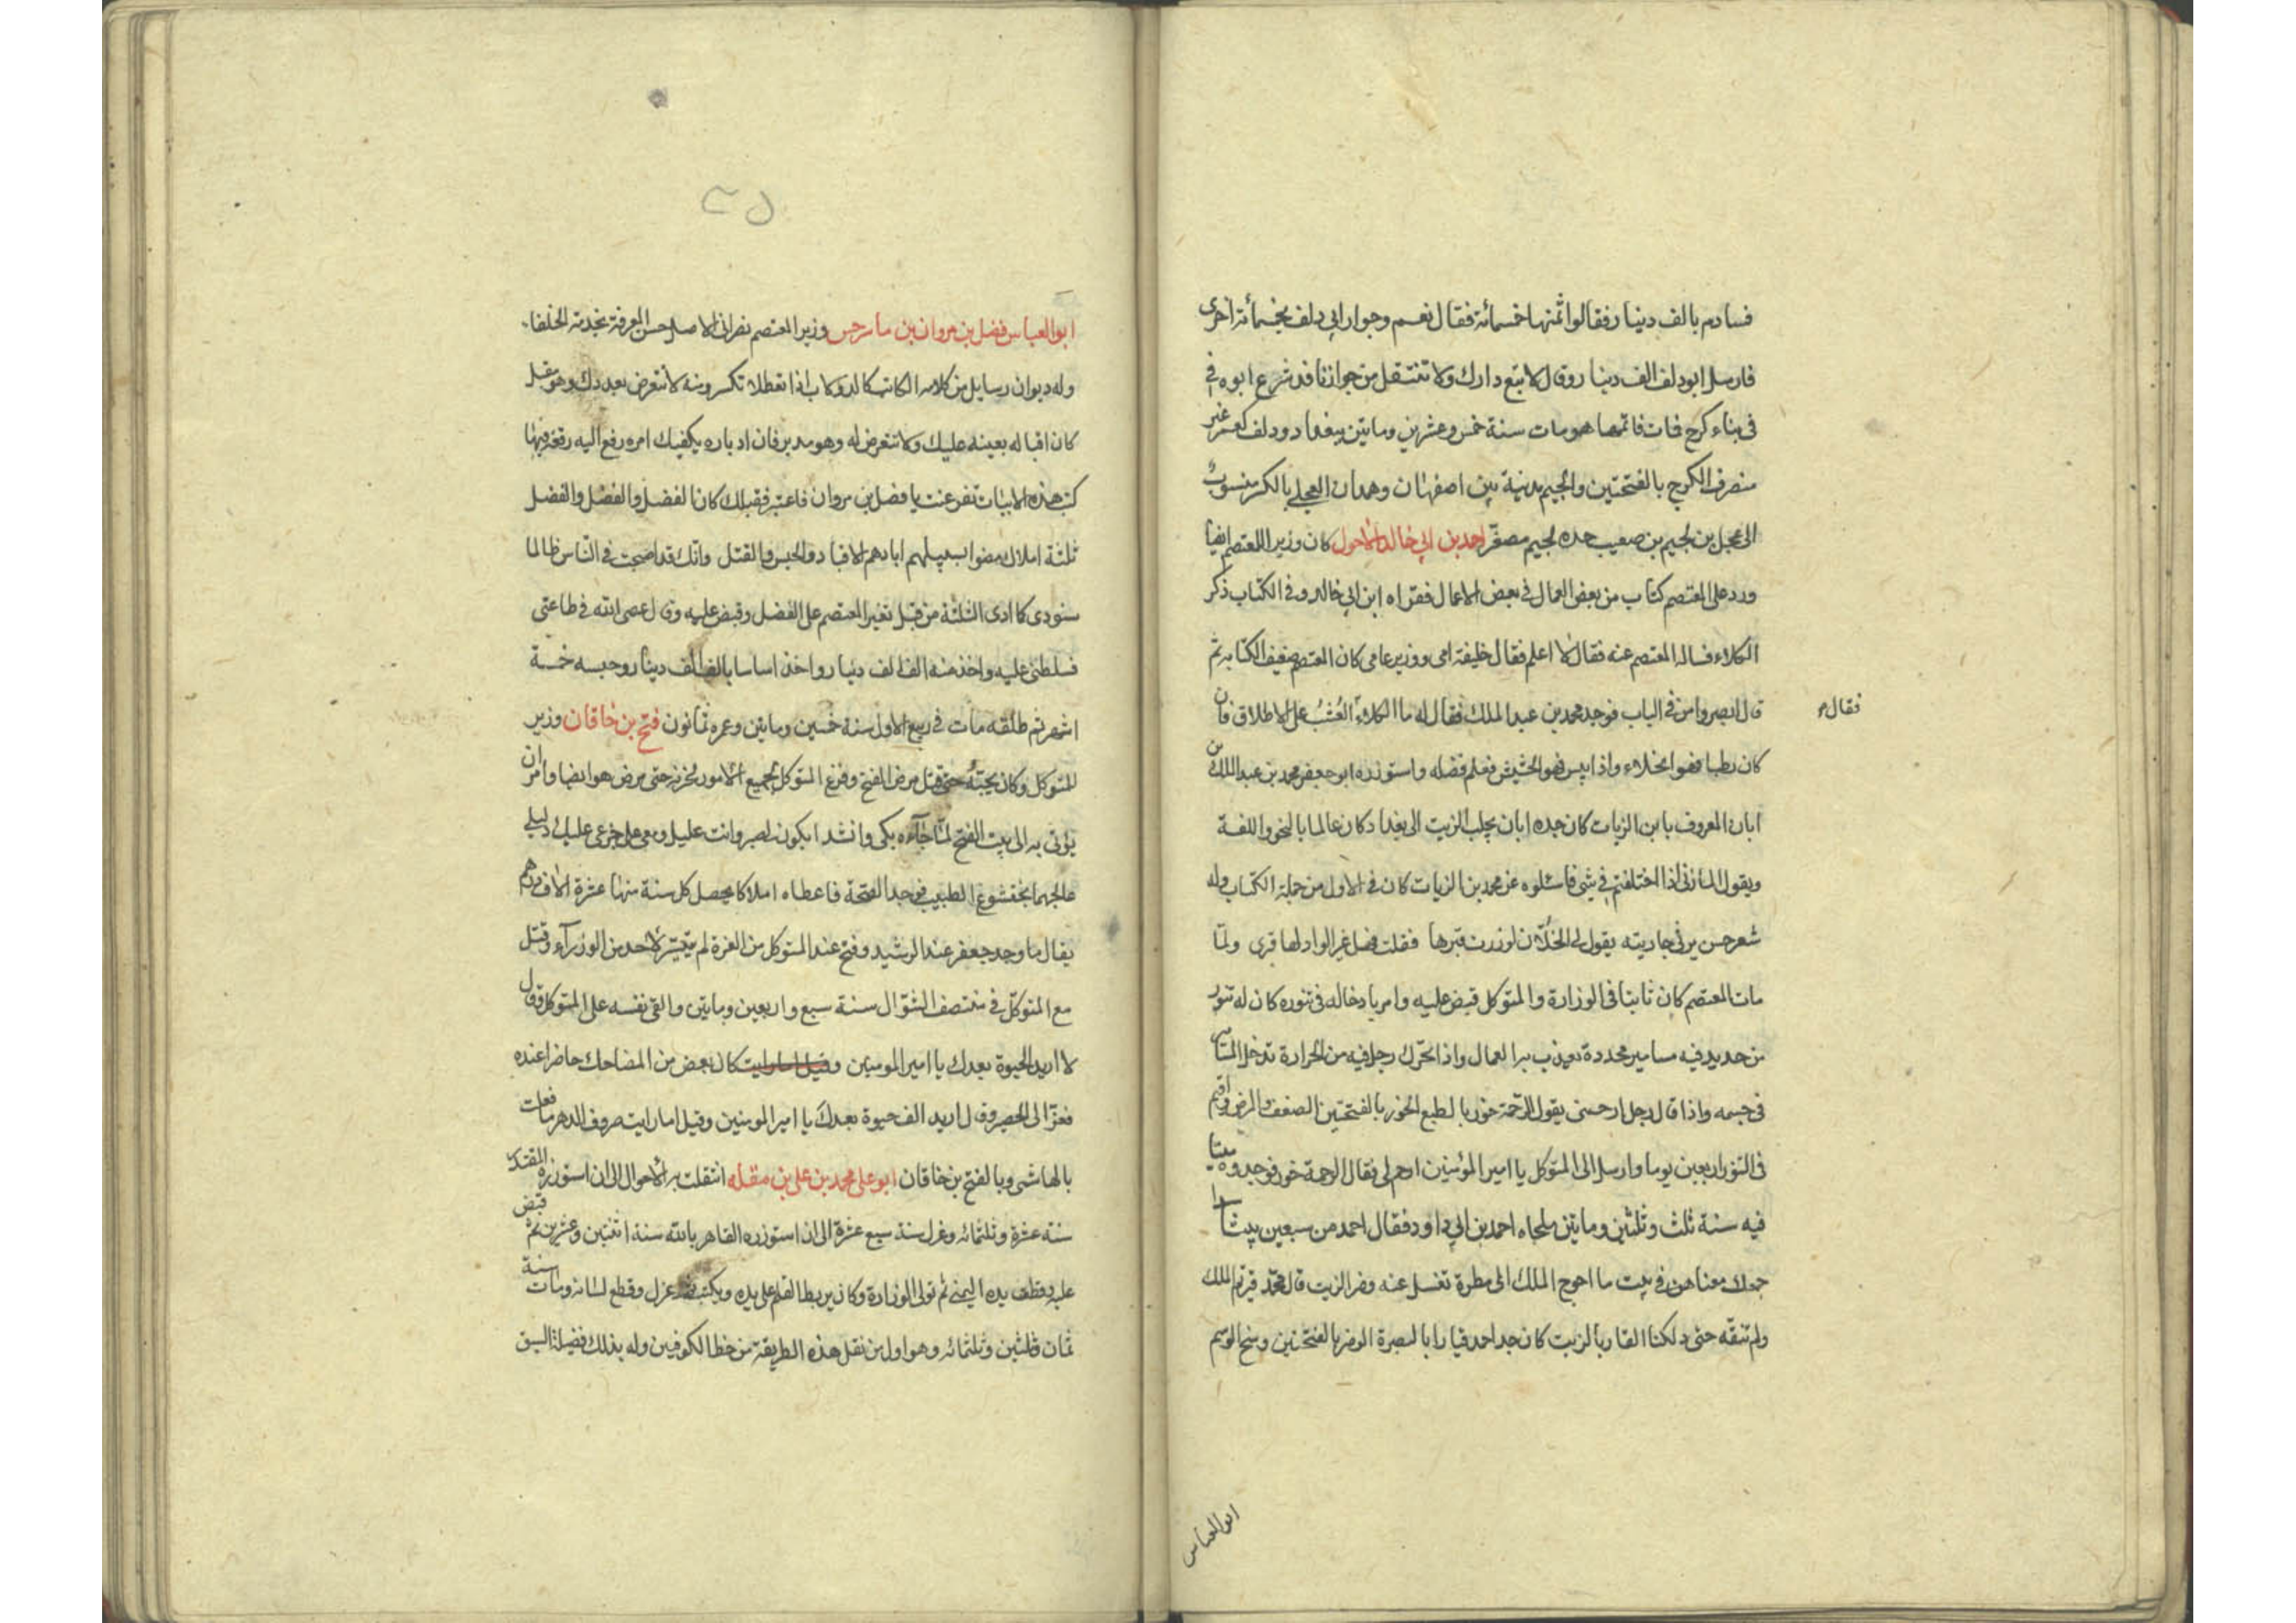 فساوم بالف دينار فقالوا ثمنها خمسمائة فقال نعم وجوار ابي دلف بخمسمائة اخرى
فارسل ابودلف الف دينار وقال لا تبع دارك ولا تنتقل من جوارنا قد شرع ابوه في
فى بناء كرج فمات فاتمها هو مات سنة خمس وعشرين وماتين ببغداد ودلف كعمر غير
منصرف الكرج بالفتحتين والجيم مدينة بين اصفهان وهمدان العجلى بالكسر منسوب
الى عجل بن لجيم بن صعيب جده لجيم مصغر احمد بن ابي خالد الاحول كان وزير المعتصم ايضا
ورد على المعتصم كتاب من بعض العمال فى بعض الاعمال فقراه ابن ابي خالد وفى الكتاب ذكر
الكلاء فساله المعتصم عنه فقال لا اعلم فقال خليفة امى ووزير عامى كان المعتصم ضعيف الكتابة ثم
قال ابصروا من فى الباب فوجد محمد بن عبد الملك فقال له ما الكلاء العشب على الاطلاق فان
فقال م
كان رطبا فهو الخلاء واذا يبس فهو الحشيش فعلم فضله واستوزره ابو جعفر محمد بن عبد الملك بن
ابان المعروف بابن الزيات كان جده ابان يجلب الزيت الى بغداد كان عالما بالنحو واللغة
ويقول المازنى اذا اختلفتم فى شى فاسئلوه عن محمد بن الزيات كان فى الاول من جملة الكتاب وله
شعر حسن يرثى جاريته يقول لى الخلان لو زرت قبرها فقلت فهل غير الفواد لها قبرى ولما
مات المعتصم كان ثابتا فى الوزارة والمتوكل قبض عليه وامر بادخاله فى تنوره كان له تنور
من حديد فيه مسامير محددة يعذب به العمال واذا تحرك رجل فيه من الحرارة تدخل المسامير
فى جسمه واذا قال رجل ارحمنى يقول الرحمة خور بالطبع الخور بالفتحتين الضعف والمرض اقيم
فى التنور اربعين يوما وارسل الى المتوكل يا امير المؤمنين ارحم لى فقال الرحمة خور فوجدوه ميتا
فيه سنة ثلث وثلثين وماتين هجاه احمد بن ابي داود فقال احمد من سبعين بيتا
جمعك معناهن فى بيت ما احوج الملك الى مطرة تغسل عنه وضر الزيت قال محمد قيرتم الملك
ولم ننقه حتى دلكنا القار بالزيت كان جد احمد قيارا بالبصرة الوضر بالفتحتين وسخ الدسم
ابو العباس
ابو العباس فضل بن مروان بن ماسرجس وزير المعتصم نصرانى الاصل حسن المعرفة بخدمة الخلفاء
وله ديوان رسايل من كلامه الكاتب كالدولاب اذا تعطلا تكسر ومنه لا تتعرض بعدوك وهو مقبل
كان اقباله بعينه عليك ولا تتعرض له وهو مدبر فان ادباره يكفيك امره رفع اليه رقعة فيها
كتب هذه الابيات تفرعنت يا فضل بن مروان فاعتبر فقبلك كان الفضل والفضل والفضل
ثلثة املاك مضوا لسبيلهم ابادهم الاقياد والحبس والقتل وانك قد اصبحت فى الناس ظالما
ستودى كما اودى الثلثة من قبل تغير المعتصم على الفضل وقبض عليه وقال عصى الله فى طاعتى
فسلطنى عليه واخذ منه الف الف دينار واخذ اساسا بالف الف دينار وحبسه خمسة
اشهر ثم طلقه مات فى ربيع الاول سنة خمسين وماتين وعمره ثمانون فتح بن خاقان وزير
المتوكل وكان يحبه حتى قيل مرض الفتح وفرغ المتوكل بجميع الامور لحزنه حتى مرض هو ايضا وامر ان
يؤتى به الى بيت الفتح لما جاءه بكى وانشد ايكون لصبر وانت عليل ومعى على جزعى عليك دليلى
عالجهما بختشوع الطبيب فوجدا الصحة فاعطاه املاكا يحصل كل سنة منها عشرة الاف درهم
يقال ما وجد جعفر عند الرشيد وفتح عند المتوكل من العزة لم يتيسر لاحد من الوزرآء وقتل
مع المتوكل فى منتصف الشوال سنة سبع واربعين وماتين والقى نفسه على المتوكل وقال
لا اريد الحيوة بعدك يا امير المومنين كان بعض من المضاحك حاضرا عنده
ففر الى الحصير وقال اريد الف حيوة بعدك يا امير المومنين وقيل اما رايت صروف الدهر ما فعلت
بالهاشمى وبالفتح بن خاقان ابو على محمد بن على بن مقله انتقلت به الاحوال الى ان استوزره المقتدر
سنة عشرة وثلثمائه وعزل سنة سبع عشرة الى ان استوزره القاهر بالله سنة اثنين وعشرين ثم قبض
عليه وقطعت يده اليمنى ثم تولى الوزارة وكان يربط القلم على يده ويكتب عزل وقطع لسانه ومات سنة
ثمان وثلثين وثلثمائه وهو اول من نقل هذه الطريقة من خط الكوفيين وله بذلك فضيلة السبق